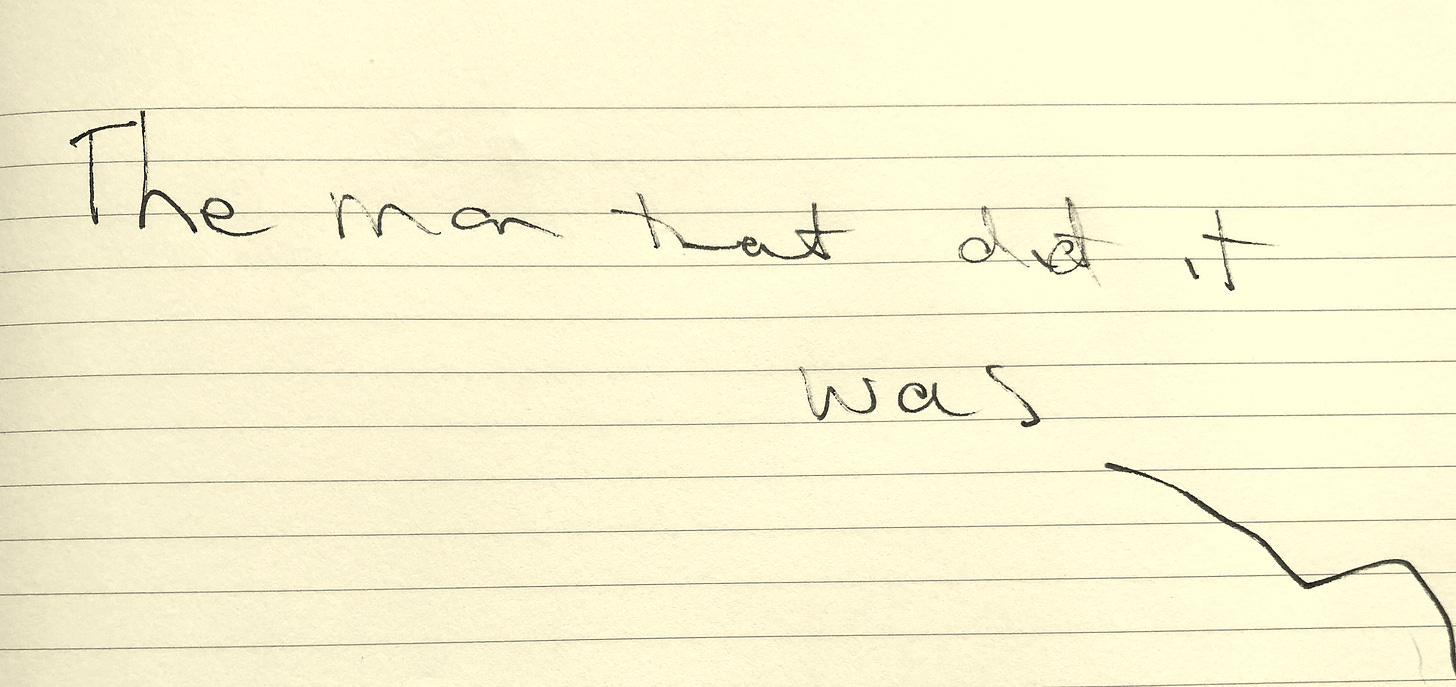 The man that did it
was